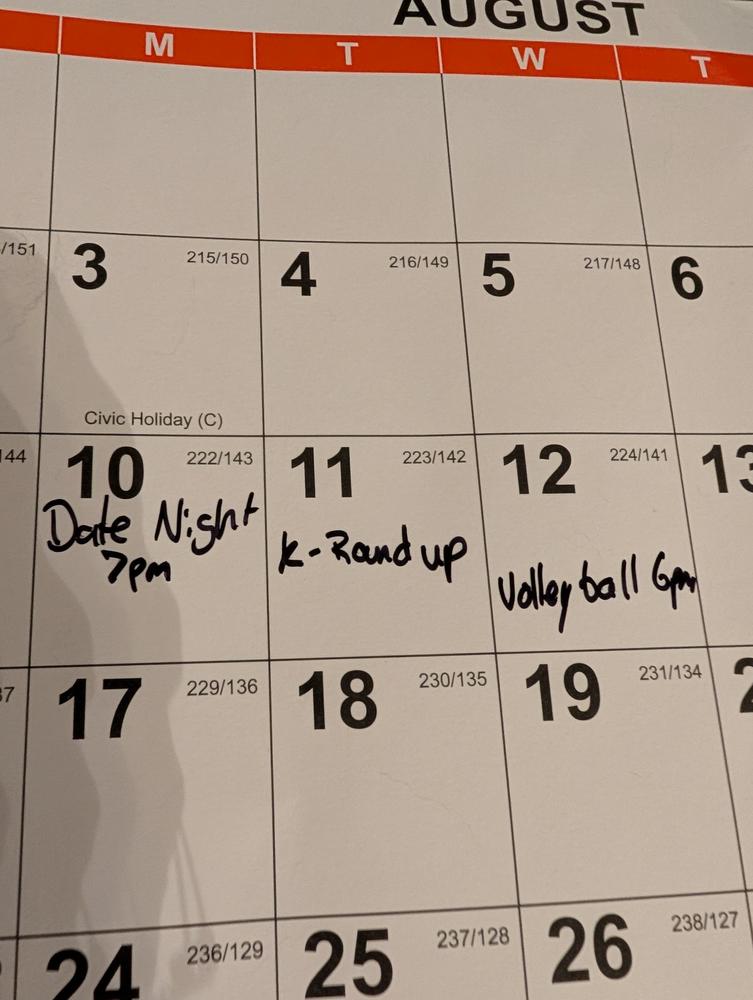 AUGUST
M T W T
/151 3 215/150 4 216/149 5 217/148 6
Civic Holiday (C)
144 10 222/143 11 223/142 12 224/141 13
Date Night K-Round up
7pm Volleyball 6pm
37 17 229/136 18 230/135 19 231/134 2
24 236/129 25 237/128 26 238/127